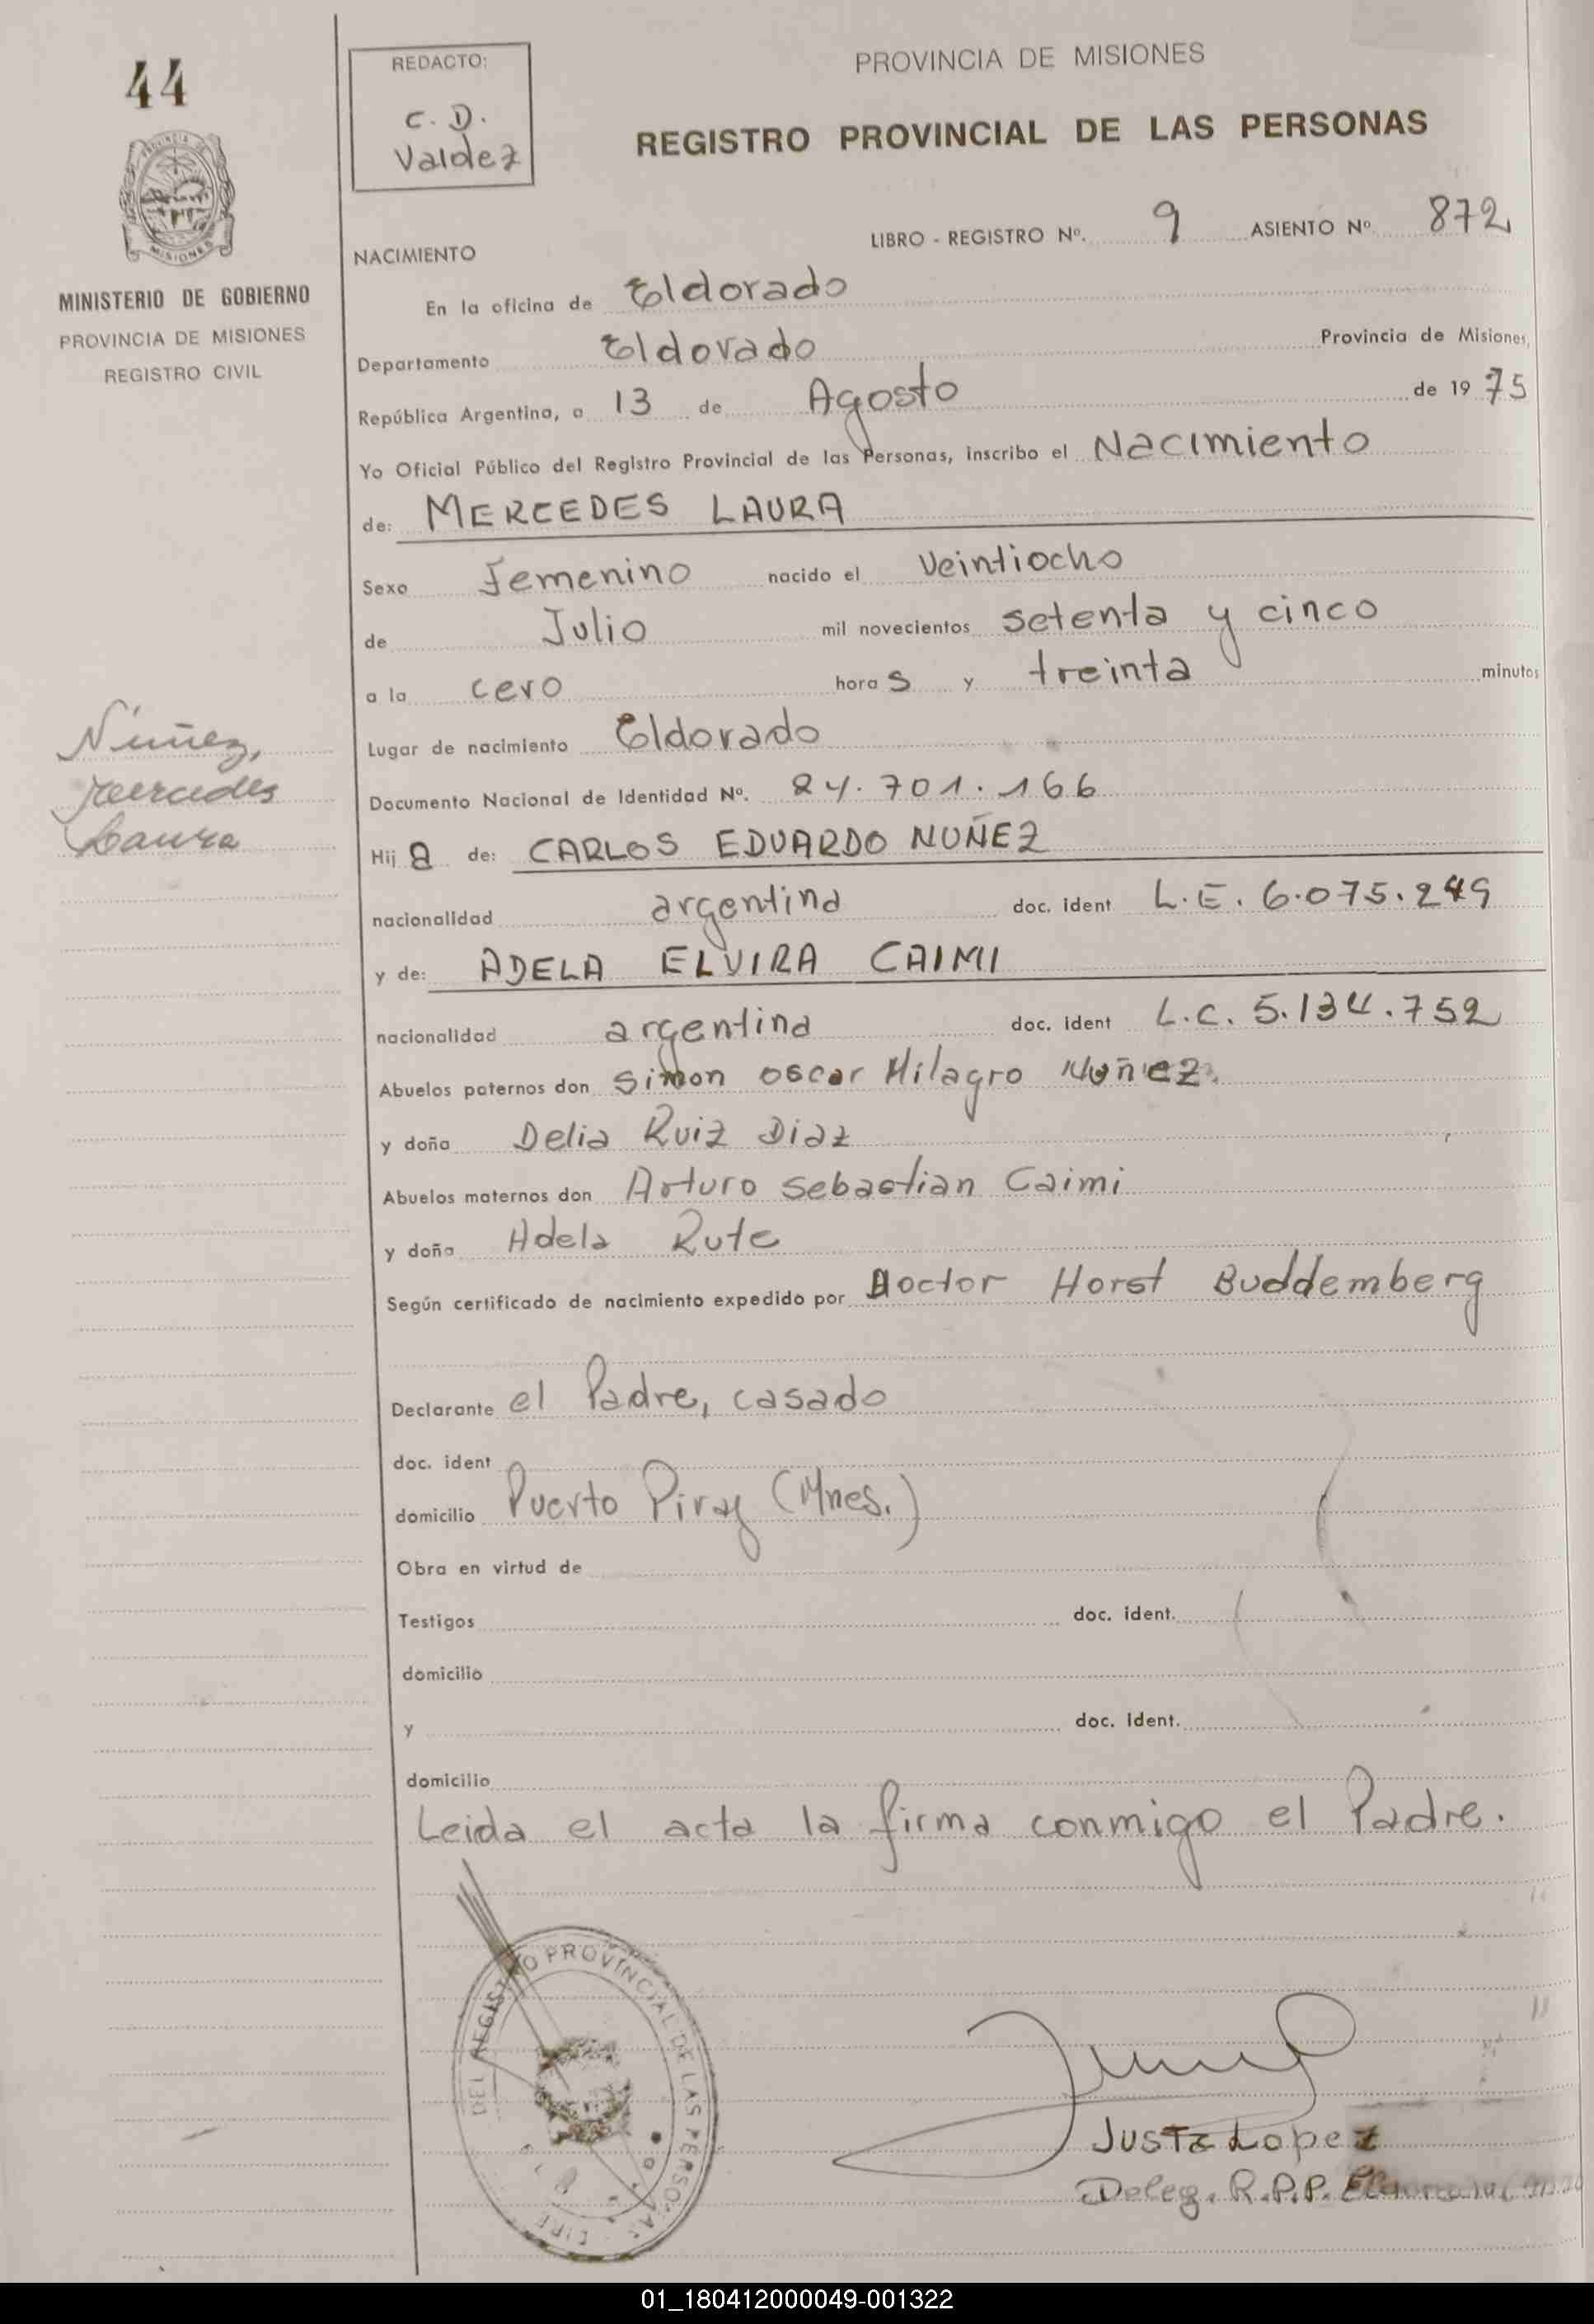 44
REDACTO:
C. D.
Valdez
PROVINCIA DE MISIONES
REGISTRO PROVINCIAL DE LAS PERSONAS
MISIONES
MINISTERIO DE GOBIERNO
PROVINCIA DE MISIONES
REGISTRO CIVIL
LIBRO - REGISTRO Nº. 9 ASIENTO Nº 872
NACIMIENTO
En la oficina de Eldorado
Departamento Eldorado Provincia de Misiones,
República Argentina, a 13 de Agosto de 1975
Yo Oficial Público del Registro Provincial de las Personas, inscribo el Nacimiento
de: MERCEDES LAURA
Sexo Femenino nacido el Veintiocho
de Julio mil novecientos setenta y cinco
a la cero horas y treinta minutos
Lugar de nacimiento Eldorado
Núñez,
Mercedes
Laura
Documento Nacional de Identidad Nº. 24.701.166
Hija de: CARLOS EDUARDO NUÑEZ
nacionalidad argentina doc. ident L.E. 6.075.249
y de: ADELA ELVIRA CAIMI
nacionalidad argentina doc. ident L.C. 5.134.752
Abuelos paternos don Simon Oscar Milagro Nuñez.
y doña Delia Ruiz Diaz
Abuelos maternos don Arturo Sebastian Caimi
y doña Adela Rute
Según certificado de nacimiento expedido por Doctor Horst Buddemberg
Declarante el Padre, casado
doc. ident
domicilio Puerto Piray (Mnes.)
Obra en virtud de
Testigos doc. ident.
domicilio
y doc. ident.
domicilio
Leida el acta la firma conmigo el Padre.
DEL REGISTRO PROVINCIAL DE LAS PERSONAS
Justa Lopez
Deleg. R.P.P.
01_180412000049-001322